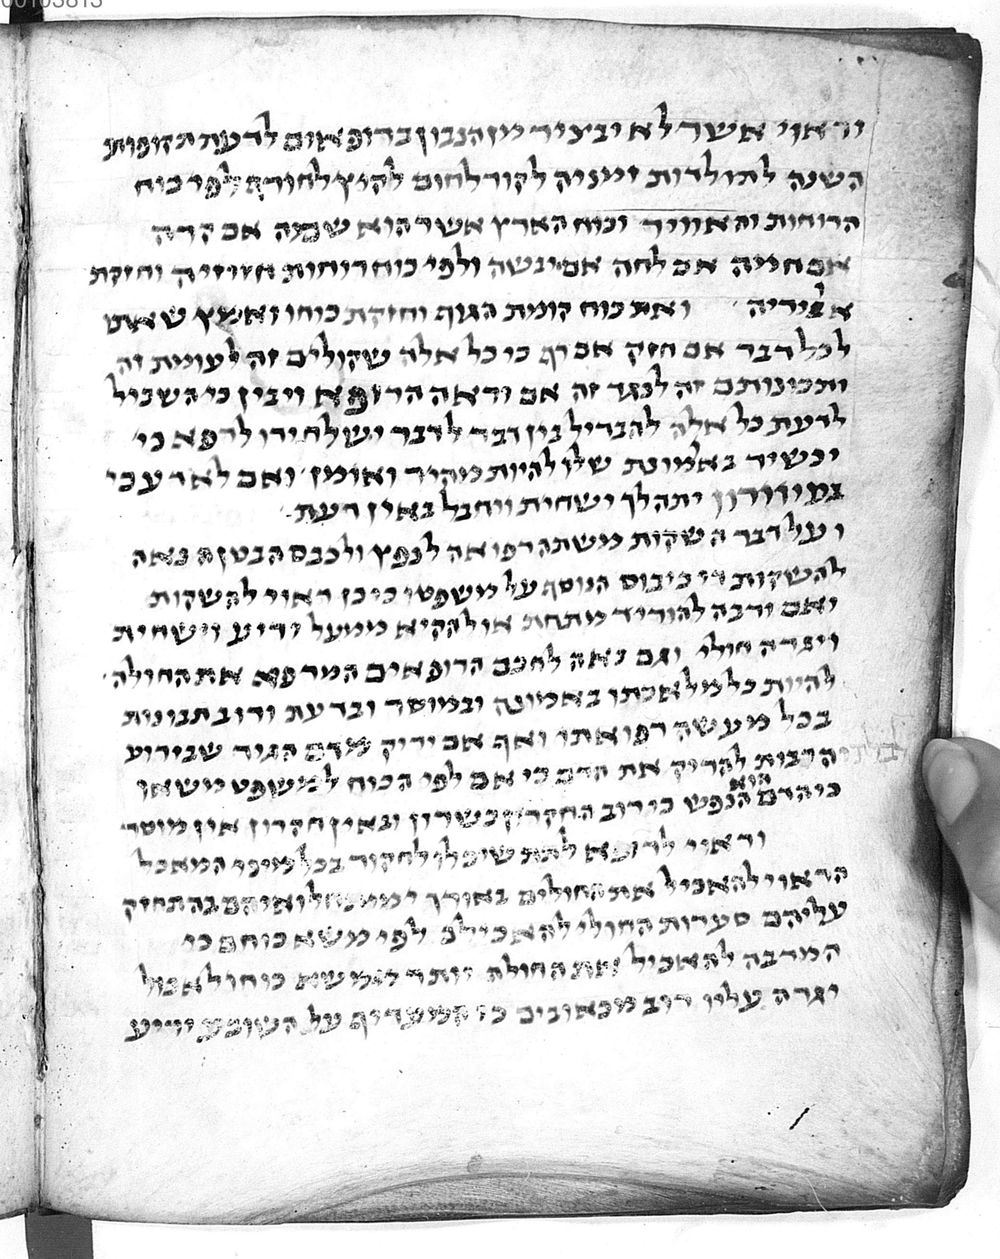 00103813
וראוי אשר לא יבציר מן הנבון ברופאים לדעת תקופות
השנה לתולדות ימניה לקור לחום לקיץ לחורף לפי כוח
הרוחות והאוויר וכוח הארץ אשר הוא שמה אם קרה
אם חמה אם לחה אם יבשה ולפי כוח רוחות חזיזיה וחזקת
אויריה ואת כוח קומת הגוף וחזקת כוחו ואומץ שאתו
לכל דבר אם חזק אם רף כי כל אלה שקולים זה לעומת זה
ותכונותם זה לנגד זה אם יראה הרופא ויבין כי השכיל
לדעת כל אלה להבדיל בין דבר לדבר ישלח ידו לרפא כי
יכשיר באמונת שלו להיות מהיר ואומן ואם לאו עכי
בעיוורון יתהלך ישחית ויחבל באין דעת
ועל דבר השקות משתה רפואה לנפץ ולכבס הבטן נאה
להשקות די כיבוס הנוסף על משפטו כי כן ראוי להשקות
ואם ירבה להוריד מתחת או להקיא ממעל ידיע וישחית
ויגרה חולי וגם נאה לחכם הרופאים המרפא את החולה
להיות כל מלאכתו באמונה ובמוסר ובדעת ורוב תבונות
בכל מעשה רפואתו ואף אם יריק מדם הגיד שבידוע
הרבות להריק את הדם כי אם לפי הכוח למשפט משאו
כי הדם הוא הנפש כי רוב החקרון כשרון ובאין חקרון אין מוסר
וראוי לרופא לתת שיכלו לחקור בכל מיני המאכל
הראוי להאכיל את החולים באורך ימי מחלואיהם בהתחזק
עליהם סערות החולי להאכילם לפי משא כוחם כי
המרבה להאכיל את החולה יותר ממשא כוחו לאכול
יגרה עליו רוב מכאובים כי המעדיף על השובע ידיע